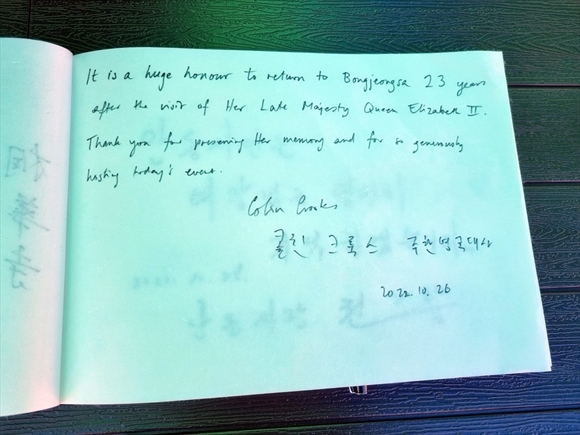 It is a huge honour to return to Bongjeongsa 23 years
after the visit of Her Late Majesty Queen Elizabeth II.
Thank you for preserving Her memory and for so generously
hosting today's event.
Colin Crooks
콜린 크룩스 주한영국대사
2022.10.26